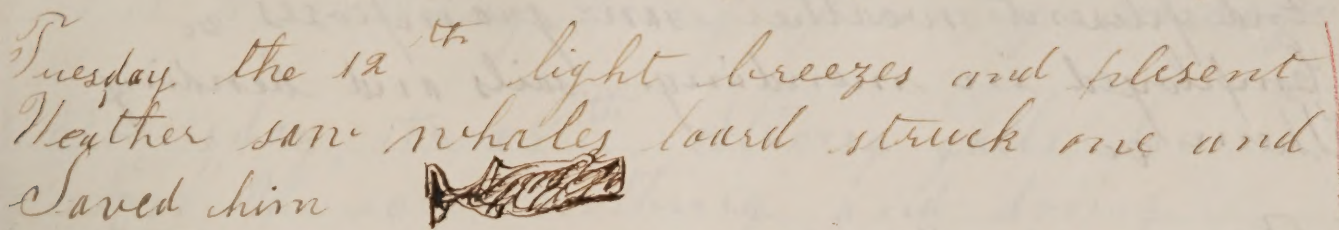 Tuesday the 12th light breezes and plesent
Weather saw whales loard struck one and
Saved him